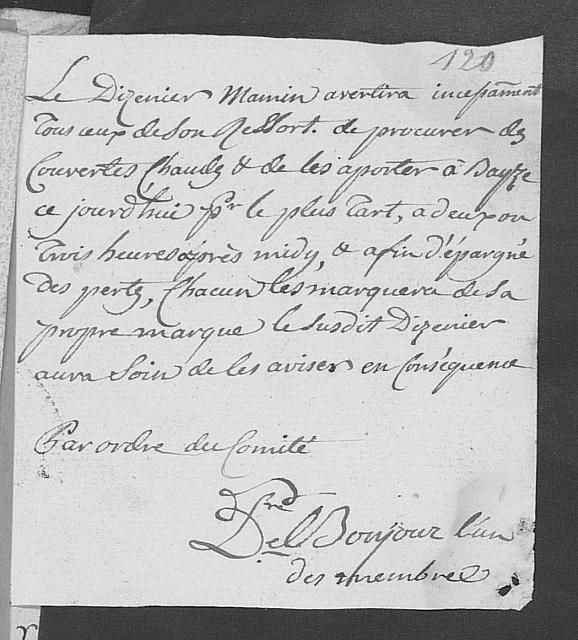 120
Le Dizenier Mamin avertira incessãment
Tous ceux de son Ressort. de procurer des
Couvertes Chaudes & de les aporter à
ce jourd'hui pr le plus Tart, a deux ou
Trois heures après midy, & afin d'épargné
des pertes, Chacun les marquera de sa
propre marque le susdit Dizenier
aura Soin de les aviser en Conséquence
Par ordre du Comité
Bonjour l'un
des membres